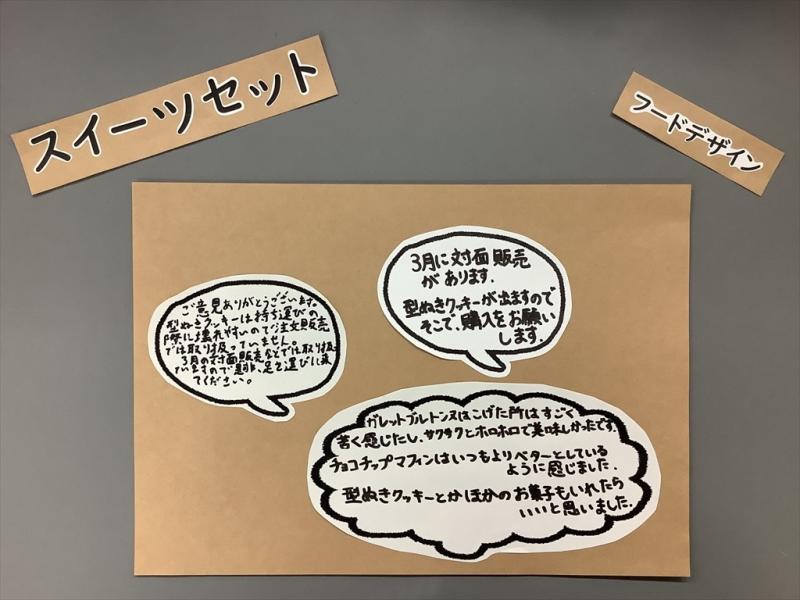 スイーツセット
フードデザイン
3月に対面販売
があります.
型ぬきクッキーが出ますので
そこで、購入をお願い
します.
ご意見ありがとうございます。
型ぬきクッキーは持ち運びの
際に壊れやすいので注文販売
では取り扱っていません。
3月の対面販売などでは取り扱
いますので是非、足を運びに来
てください。
ガレットブルトンヌはこげた所はすごく
苦く感じたし、サクサクとホロホロで美味しかったです.
チョコチップマフィンはいつもよりベターとしている
ように感じました.
型ぬきクッキーとかほかのお菓子もいれたら
いいと思いました.